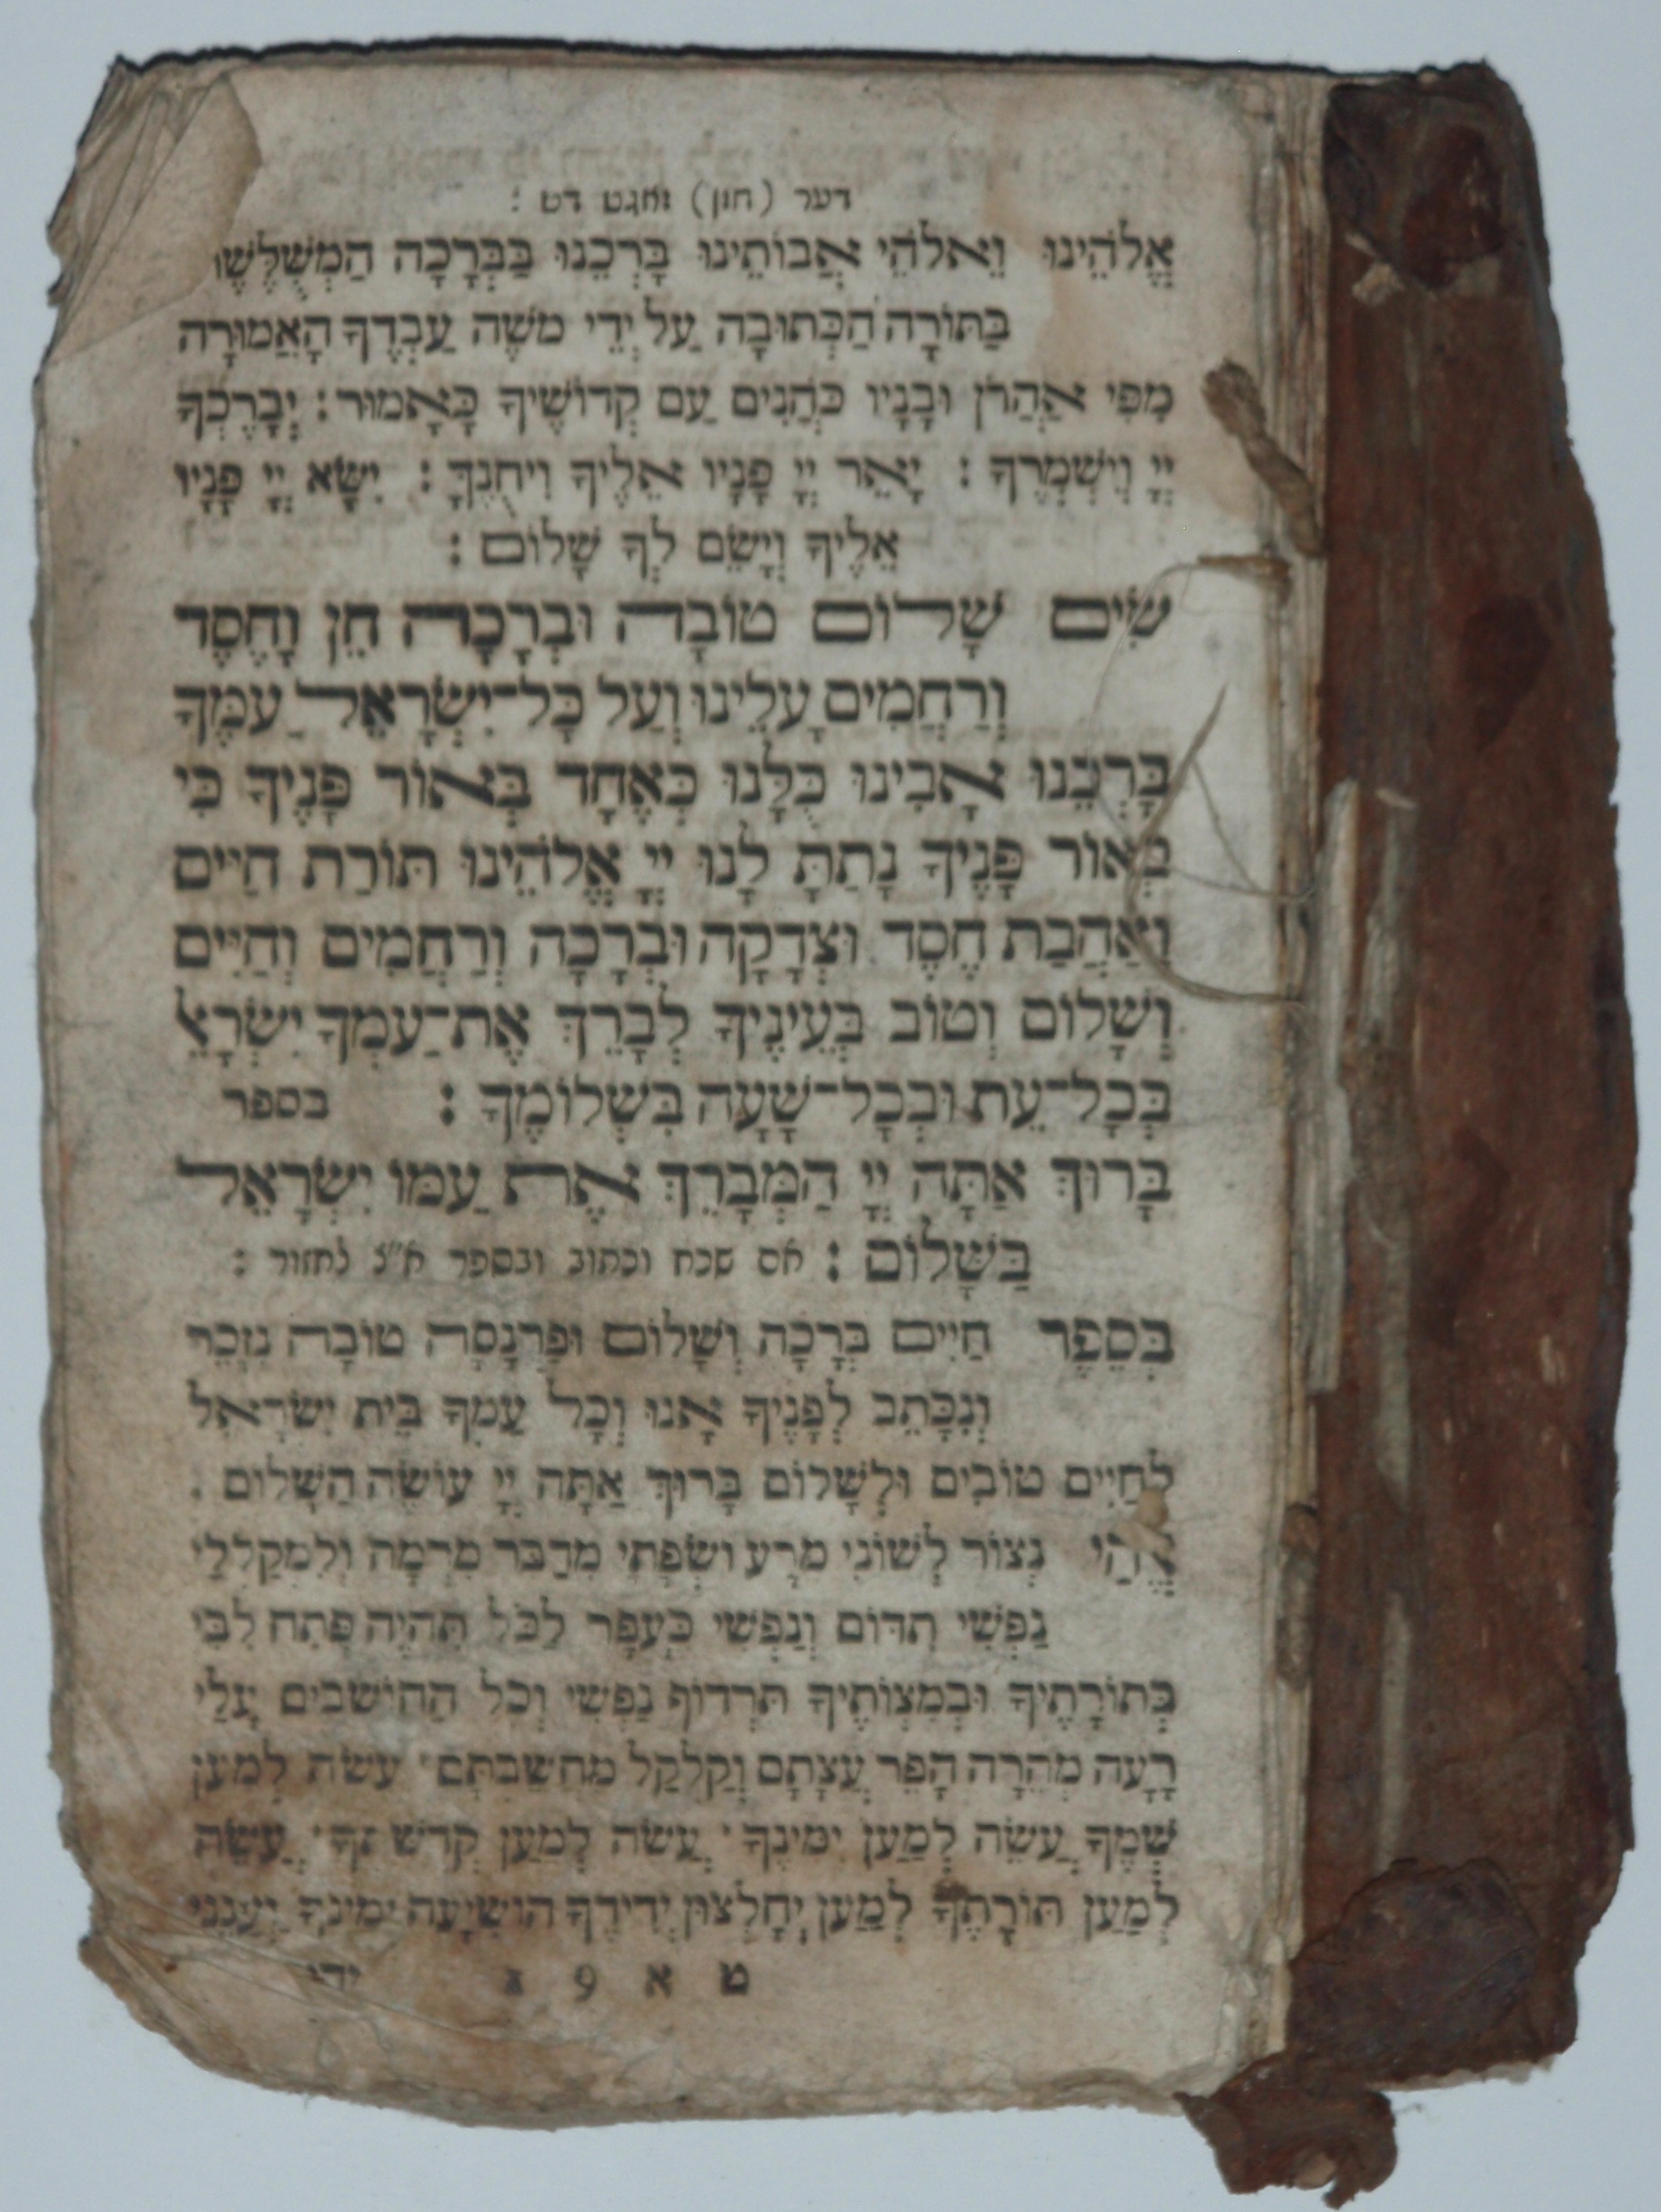 דער (חזן) זאגט דט :
אֱלֹהֵינוּ וֵאלֹהֵי אֲבוֹתֵינוּ בָּרְכֵנוּ בַּבְּרָכָה הַמְשֻׁלֶּשֶׁ
בַּתּוֹרָה הַכְּתוּבָה עַל יְדֵי משֶׁה עַבְדֶּךָ הָאֲמוּרָה
מִפִּי אַהֲרֹן וּבָנָיו כֹּהֲנִים עַם קְדוֹשֶׁיךָ כָּאָמוּר : יְבָרֶכְךָ
יְיָ וְיִשְׁמְרֶךָ : יָאֵר יְיָ פָּנָיו אֵלֶיךָ וִיחֻנֶּךָּ : יִשָּׂא יְיָ פָּנָיו
אֵלֶיךָ וְיָשֵׂם לְךָ שָׁלוֹם :
שִׂים שָׁלוֹם טוֹבָה וּבְרָכָה חֵן וָחֶסֶד
וְרַחֲמִים עָלֵינוּ וְעַל כָּל־יִשְׂרָאֵל עַמֶּךָ
בָּרְכֵנוּ אָבִינוּ כֻּלָּנוּ כְּאֶחָד בְּאוֹר פָּנֶיךָ כִּי
בְאוֹר פָּנֶיךָ נָתַתָּ לָנוּ יְיָ אֱלֹהֵינוּ תּוֹרַת חַיִּים
וְאַהֲבַת חֶסֶד וּצְדָקָה וּבְרָכָה וְרַחֲמִים וְחַיִּים
וְשָׁלוֹם וְטוֹב בְּעֵינֶיךָ לְבָרֵךְ אֶת־עַמְּךָ יִשְׂרָאֵ
בְּכָל־עֵת וּבְכָל־שָׁעָה בִּשְׁלוֹמֶךָ : בספר
בָּרוּךְ אַתָּה יְיָ הַמְבָרֵךְ אֶת עַמּוֹ יִשְׂרָאֵל
בַּשָּׁלוֹם : אם שכח וכתוב ובספר א"צ לחזור :
בְּסֵפֶר חַיִּים בְּרָכָה וְשָׁלוֹם וּפַרְנָסָה טוֹבָה נִזָּכֵר
וְנִכָּתֵב לְפָנֶיךָ אָנוּ וְכָל עַמְּךָ בֵּית יִשְׂרָאֵל
לְחַיִּים טוֹבִים וּלְשָׁלוֹם בָּרוּךְ אַתָּה יְיָ עוֹשֵׂה הַשָּׁלוֹם .
נְצוֹר לְשׁוֹנִי מֵרָע וּשְׂפָתַי מִדַּבֵּר מִרְמָה וְלִמְקַלְלַי
נַפְשִׁי תִדּוֹם וְנַפְשִׁי כֶּעָפָר לַכֹּל תִּהְיֶה פְּתַח לִבִּי
בְּתוֹרָתֶיךָ וּבְמִצְוֹתֶיךָ תִּרְדּוֹף נַפְשִׁי וְכֹל הַחוֹשְׁבִים עָלַי
רָעָה מְהֵרָה הָפֵר עֲצָתָם וְקַלְקֵל מַחֲשַׁבְתָּם עֲשֵׂה לְמַעַן
שְׁמֶךָ עֲשֵׂה לְמַעַן יְמִינֶךָ עֲשֵׂה לְמַעַן קְדֻשָּׁתֶךָ עֲשֵׂה
לְמַעַן תּוֹרָתֶךָ לְמַעַן יֵחָלְצוּן יְדִידֶיךָ הוֹשִׁיעָה יְמִינְךָ וַעֲנֵנִי
ט א 9 ג יהי